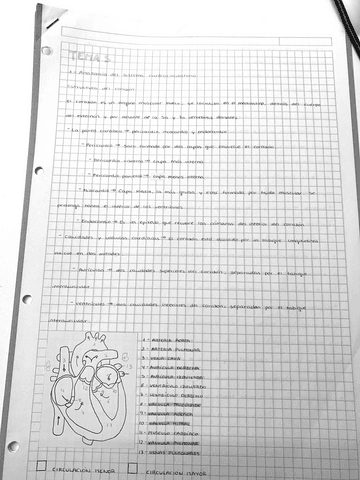 TEMA 3
1.- Anatomía del sistema cardiovascular
Estructura del corazón
El corazón es un órgano muscular hueco, se localiza en el mediastino, detrás del cuerpo
del esternón y por delante de la 5a y 8a vértebra dorsal.
- La pared cardíaca → pericardio, miocardio y endocardio
- Pericardio → Saco formado por dos capas que envuelve el corazón
- Pericardio externo → Capa más externa
- Pericardio parietal → Capa menos interna
- Miocardio → Capa media, la más gruesa y está formada por tejido muscular. Se
prolonga hasta el interior de los ventrículos
- Endocardio → Es un epitelio que recubre las cámaras del interior del corazón
- Cavidades y válvulas cardíacas → El corazón está dividido por un tabique longitudinal
en dos mitades
- Aurículas → dos cavidades superiores del corazón, separadas por el tabique
interauricular
- Ventrículos → dos cavidades inferiores del corazón, separadas por el tabique
interventricular
1 - ARTERIA AORTA
2 - ARTERIA PULMONAR
3 - VENA CAVA
4 - AURÍCULA DERECHA
5 - AURÍCULA IZQUIERDA
6 - VENTRÍCULO IZQUIERDO
7 - VENTRÍCULO DERECHO
8 - VÁLVULA TRICÚSPIDE
9 - VÁLVULA AÓRTICA
10 - VÁLVULA MITRAL
11 - MÚSCULO CARDÍACO
12 - VÁLVULA PULMONAR
13 - VENAS PULMONARES
CIRCULACIÓN MENOR
CIRCULACIÓN MAYOR